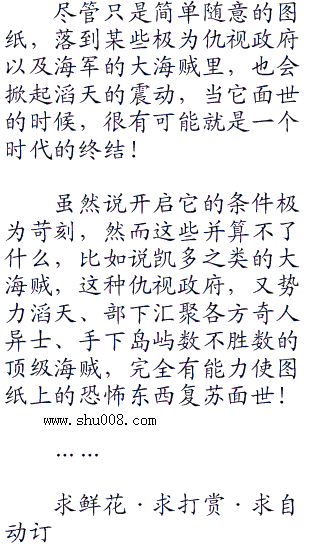 尽管只是简单随意的图
纸，落到某些极为仇视政府
以及海军的大海贼里，也会
掀起滔天的震动，当它面世
的时候，很有可能就是一个
时代的终结！
虽然说开启它的条件极
为苛刻，然而这些并算不了
什么，比如说凯多之类的大
海贼，这种仇视政府，又势
力滔天、部下汇聚各方奇人
异士、手下岛屿数不胜数的
顶级海贼，完全有能力使图
纸上的恐怖东西复苏面世！
www.shu008.com
……
求鲜花·求打赏·求自
动订